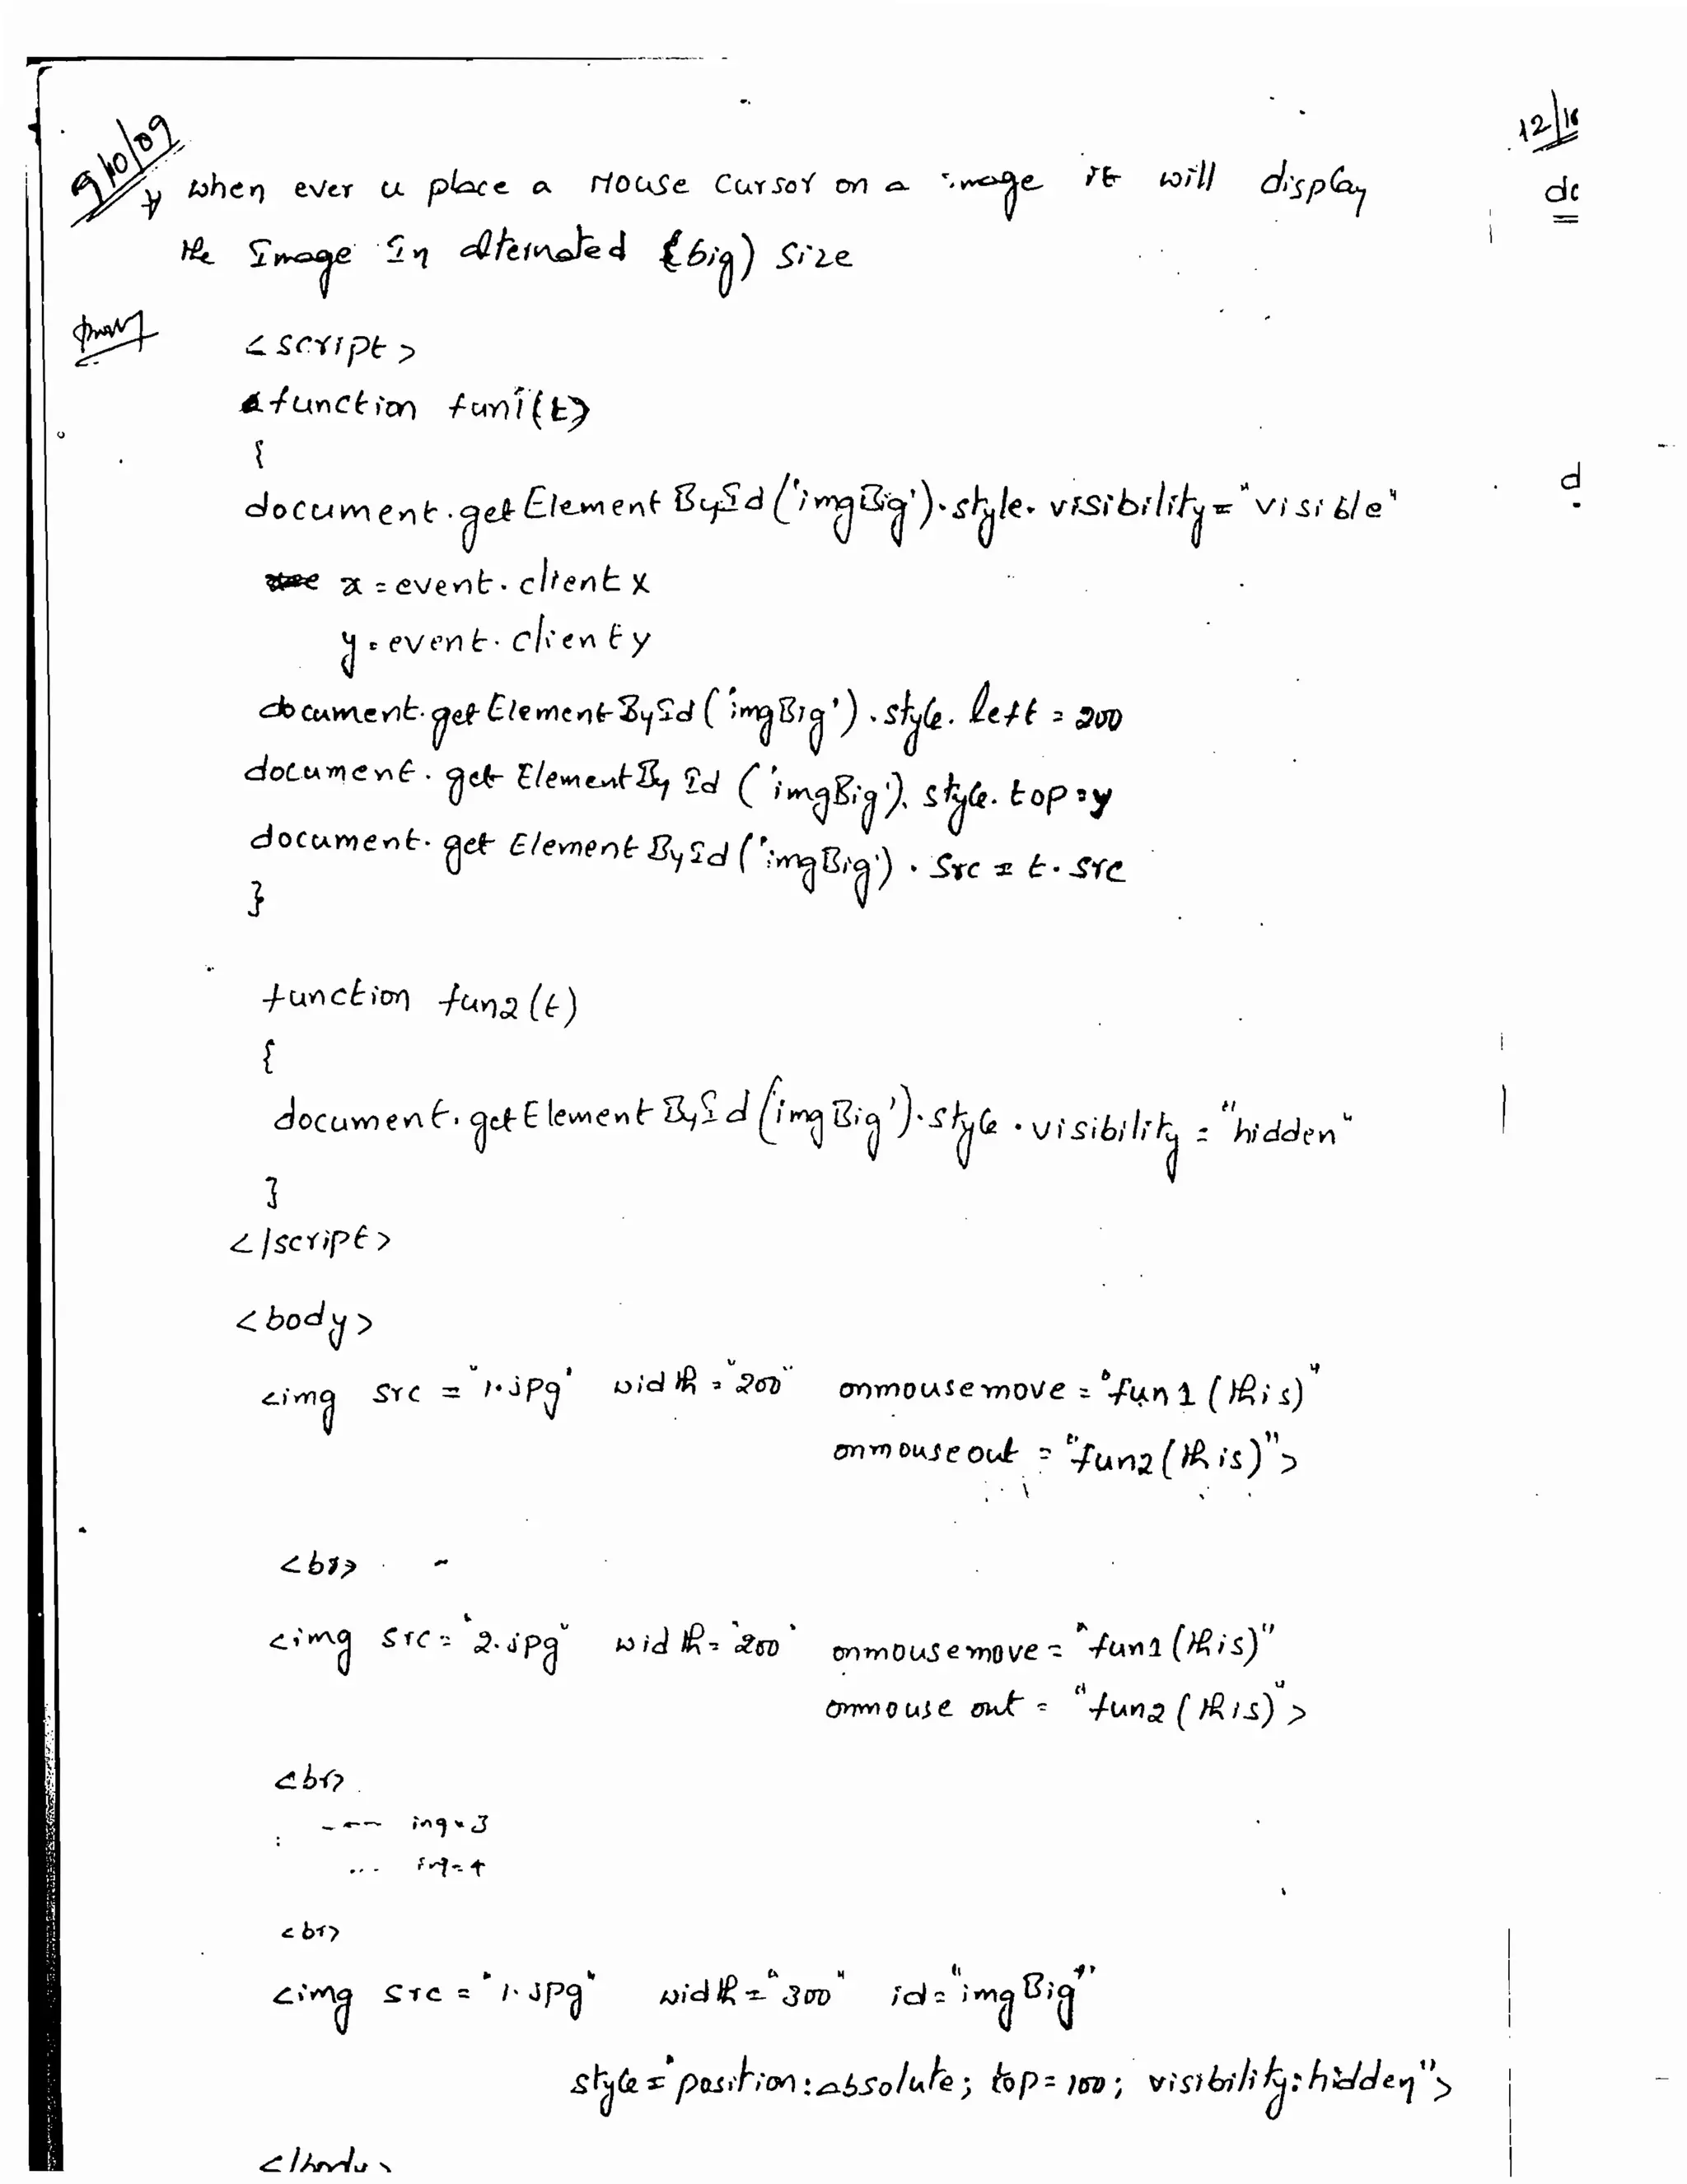 9/10/09
when ever u place a Mouse Cursor on a image it will display
the Image In alternated (big) Size
<script>
function fun1(t)
{
document.getElementById('imgBig').style.visibility="visible"
x = event.clientx
y = event.clienty
document.getElementById('imgBig').style.left = 200
document.getElementById('imgBig').style.top = y
document.getElementById('imgBig').src = t.src
}
function fun2(t)
{
document.getElementById('imgBig').style.visibility = "hidden"
}
</script>
<body>
<img src = "1.jpg" width = "200" onmousemove = "fun1(this)"
onmouseout = "fun2(this)">
<br>
<img src = "2.jpg" width = "200" onmousemove = "fun1(this)"
onmouse out = "fun2(this)">
<br>
: ---- img = 3
... img = 4
<br>
<img src = "1.jpg" width = "300" id = "imgBig"
style = "position:absolute; top = 100; visibility:hidden">
</body>
12/1
dc
d